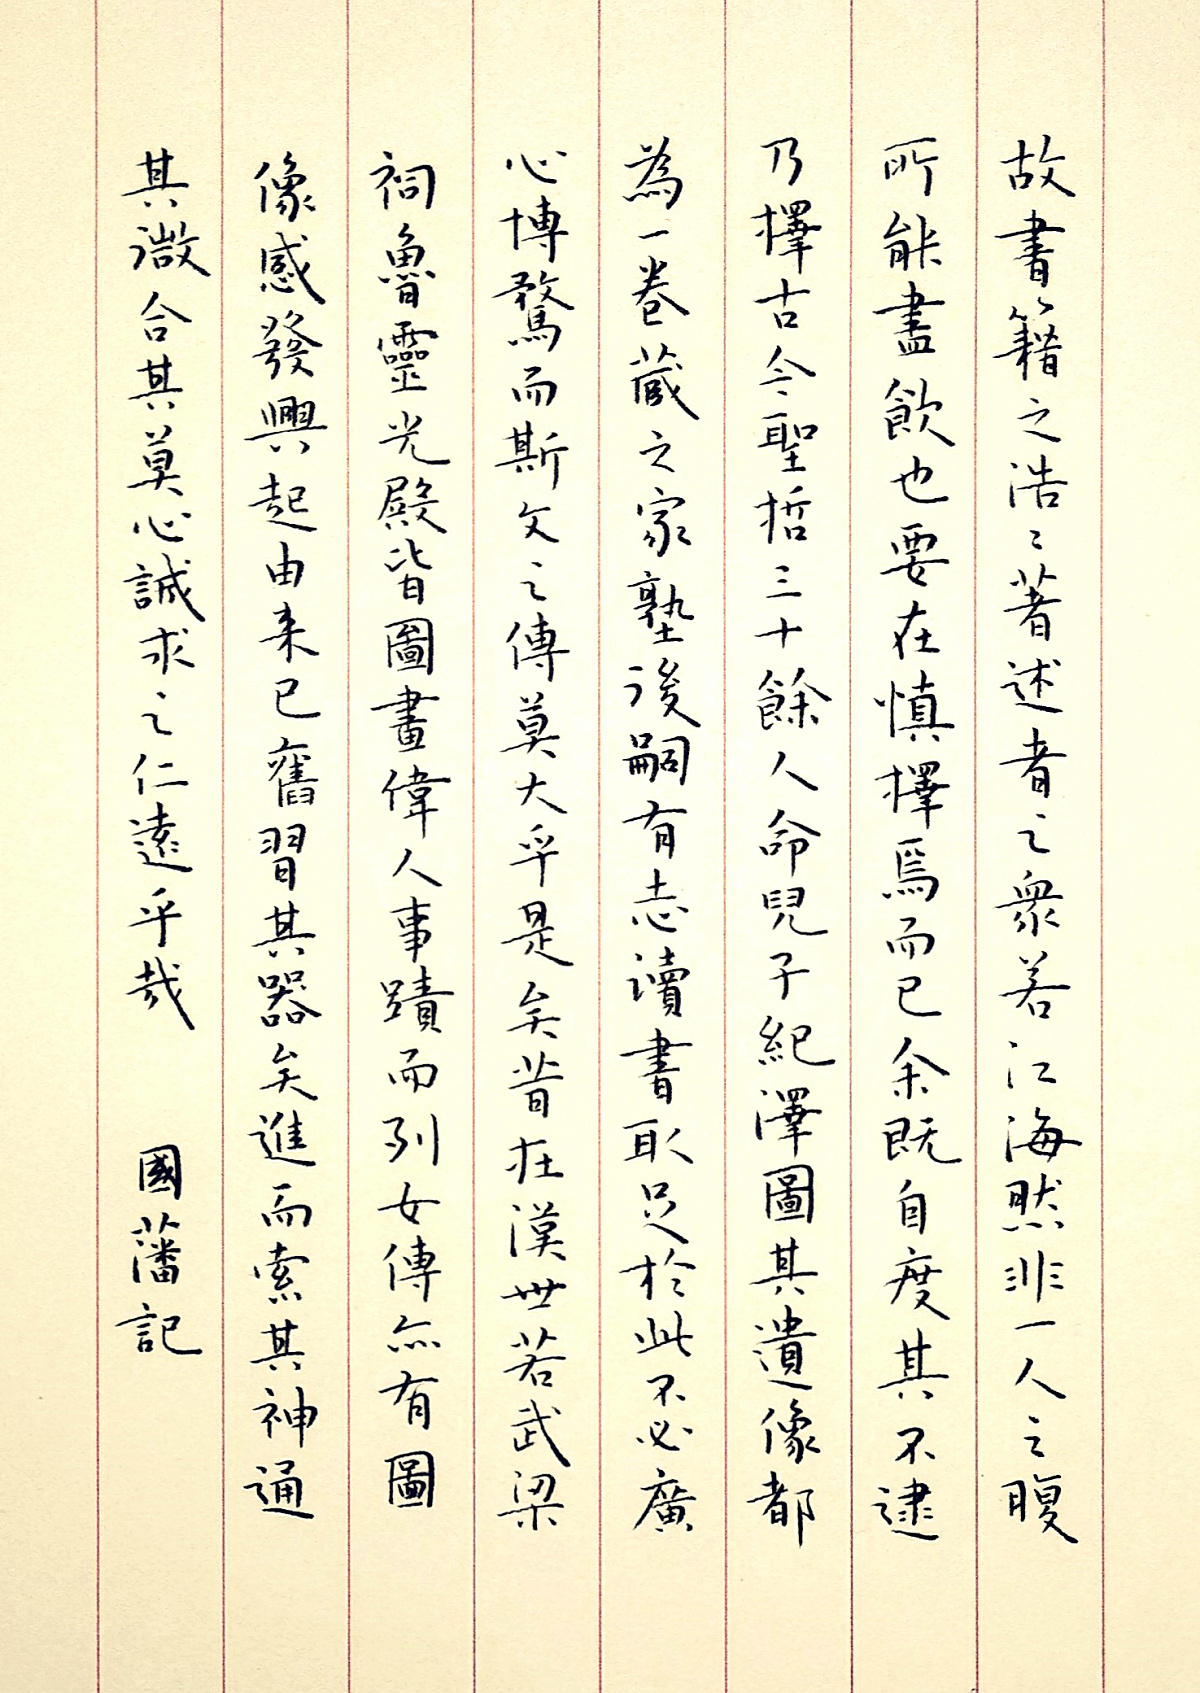 故書籍之浩〻著述者之衆若江海然非一人之腹
所能盡飲也要在慎擇焉而已余既自度其不逮
乃擇古今聖哲三十餘人命兒子紀澤圖其遺像都
為一卷藏之家塾後嗣有志讀書取足於此不必廣
心博騖而斯文之傳莫大乎是矣昔在漢世若武梁
祠魯靈光殿皆圖畫偉人事蹟而列女傳亦有圖
像感發興起由来已舊習其器矣進而索其神通
其微合其莫心誠求之仁遠乎哉
國藩記